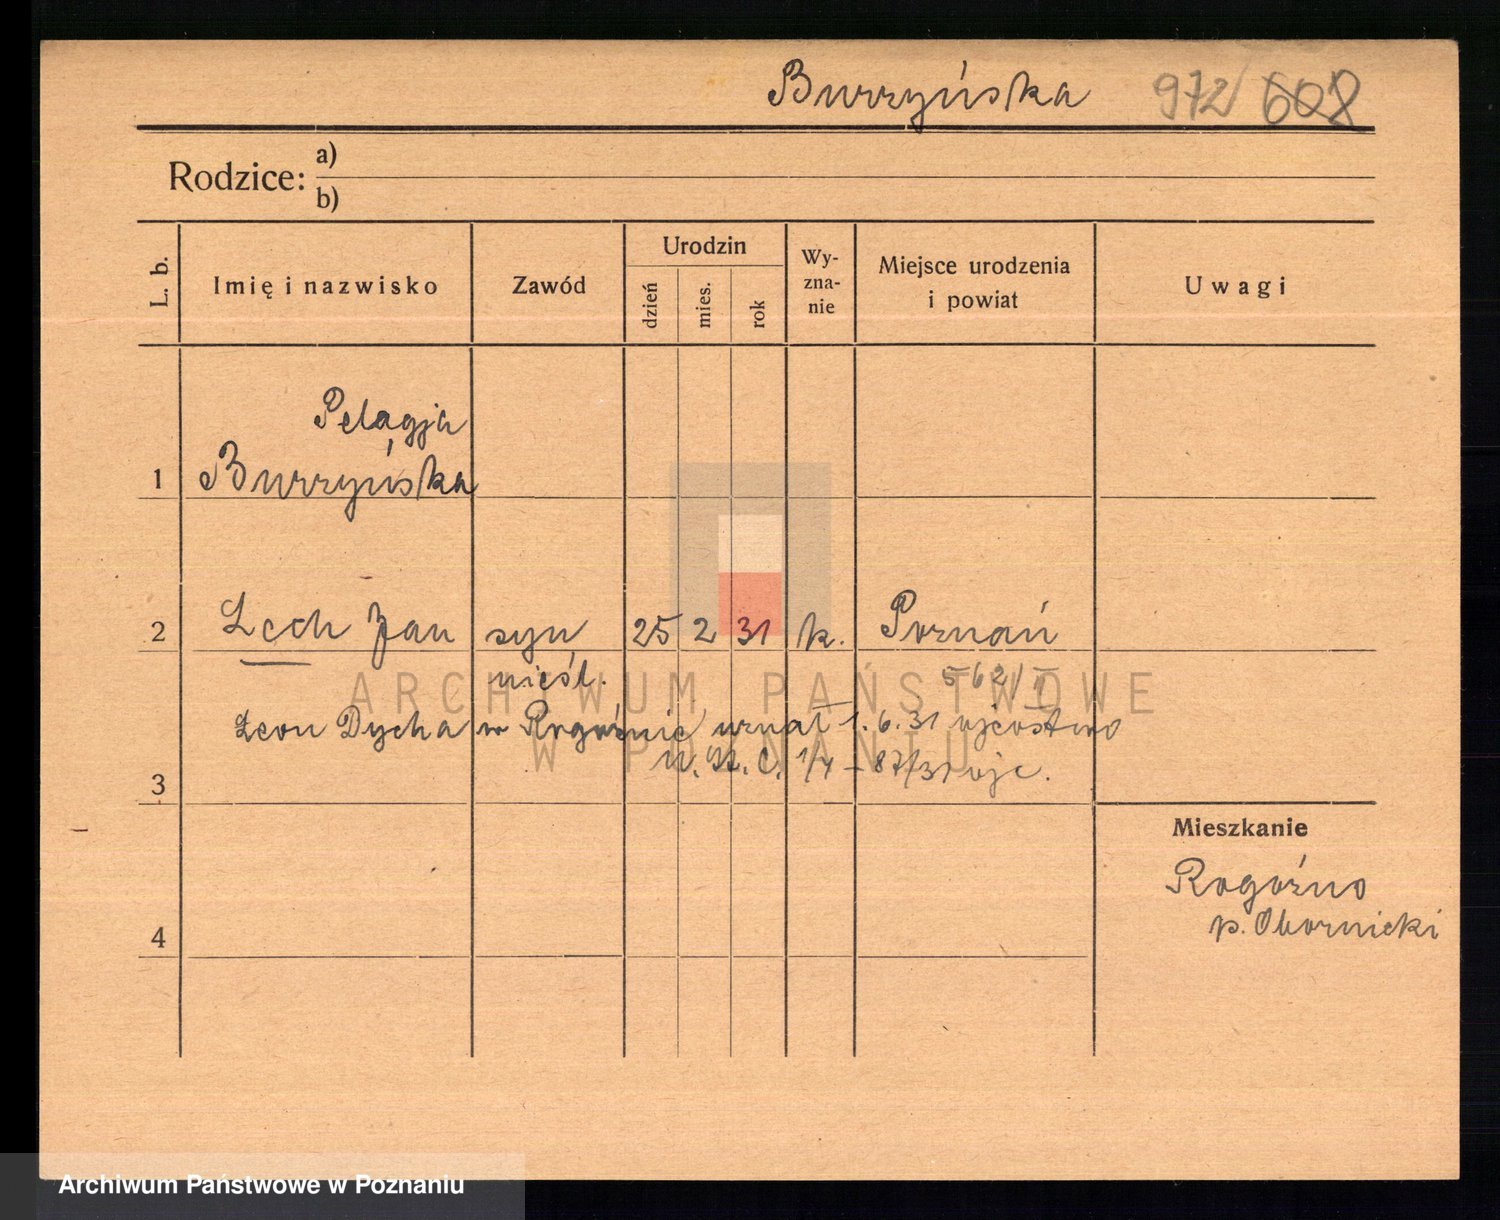 Burzyńska 972 608
Rodzice: a)
b)
L. b.
Imię i nazwisko
Zawód
Urodzin
dzień
mies.
rok
Wy-
zna-
nie
Miejsce urodzenia
i powiat
Uwagi
Pelagja
1 Burzyńska
2 Lech Jan syn 25 2 31 k. Poznań
nieśl. 562/I
Leon Dycha w Rogoźnie uznał 1.6.31 ojcostwo
U.St.C. 1/4 – 87/31 ojc.
3
Mieszkanie
Rogoźno
p. Obornicki
4
ARCHIWUM PAŃSTWOWE
W POZNANIU
Archiwum Państwowe w Poznaniu